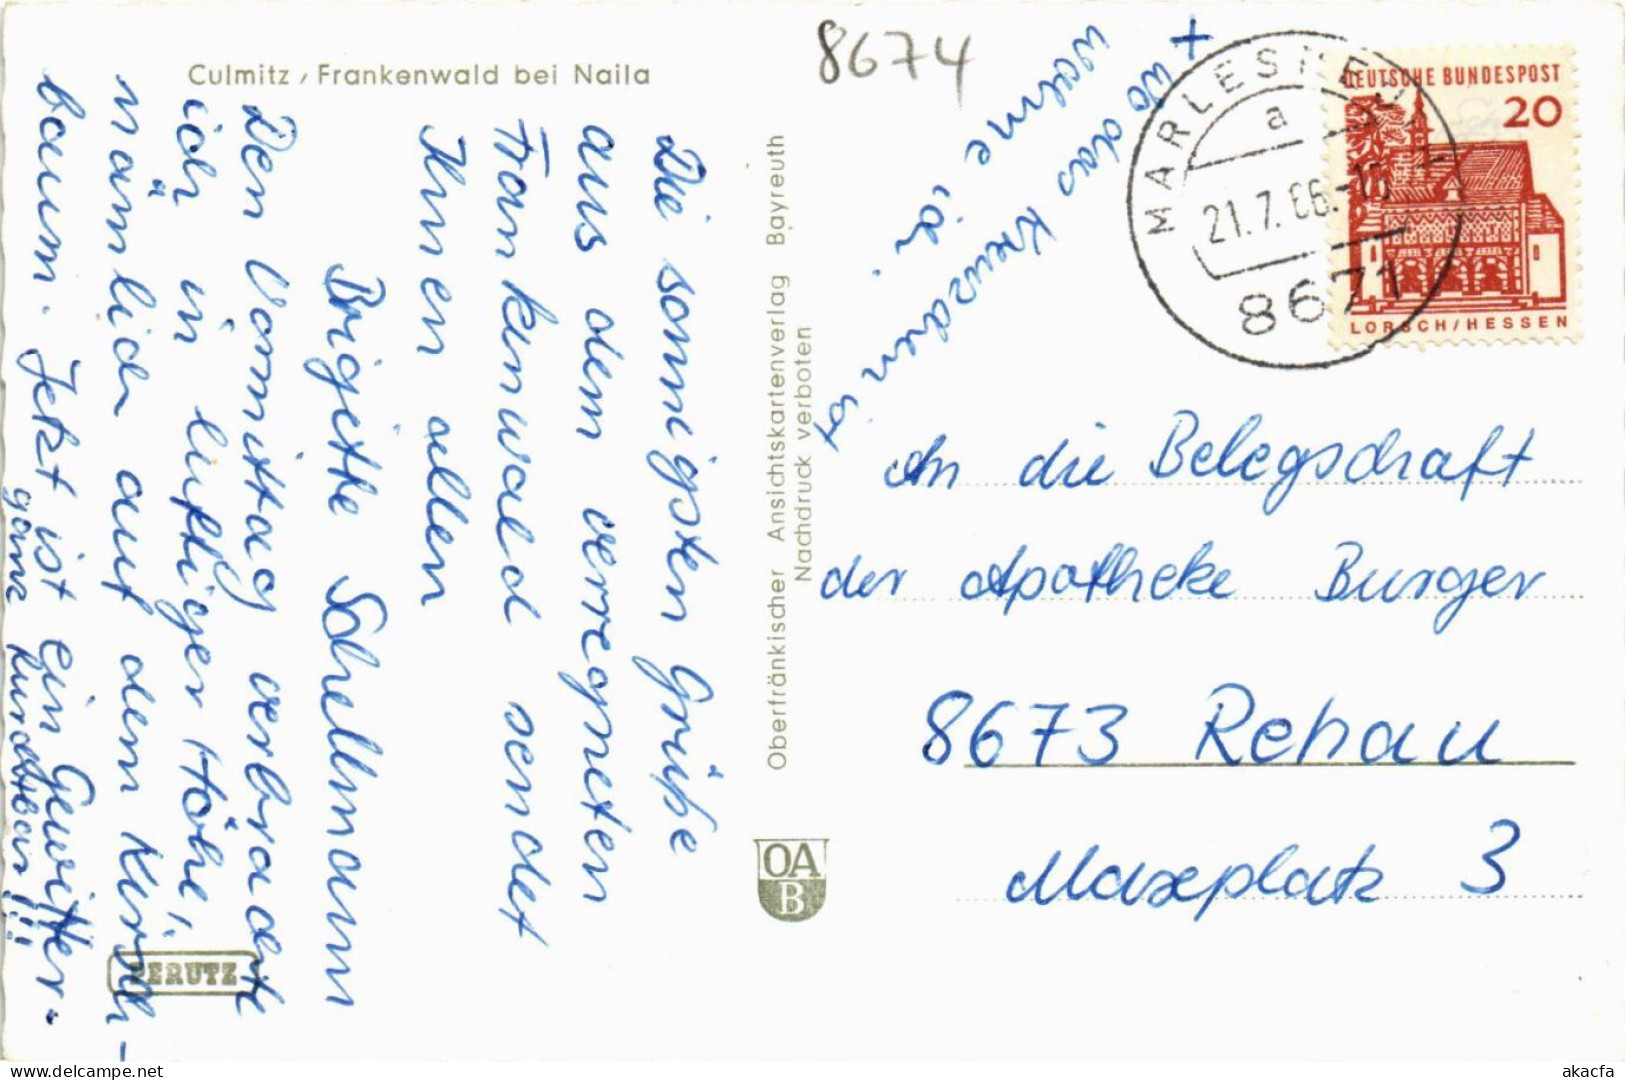 8674
Culmitz / Frankenwald bei Naila
Die sonnigsten Grüße
aus dem verregneten
Frankenwald sendet
Ihnen allen
Brigitte Schellmann
Den Vormittag verbrachte
ich in luftiger Höhe,
nämlich auf dem Kirsch-
baum. Jetzt ist ein Gewitter.
ganz furchtbar!!!
+ wo das Kreuzchen ist
wohne ich.
Oberfränkischer Ansichtskartenverlag Bayreuth
Nachdruck verboten
OA
B
PERUTZ
MARLESREUTH
a
21.7.66.-16
8671
DEUTSCHE BUNDESPOST
20
LORSCH/HESSEN
An die Belegschaft
der Apotheke Burger
8673 Rehau
Maxplatz 3
akacfa